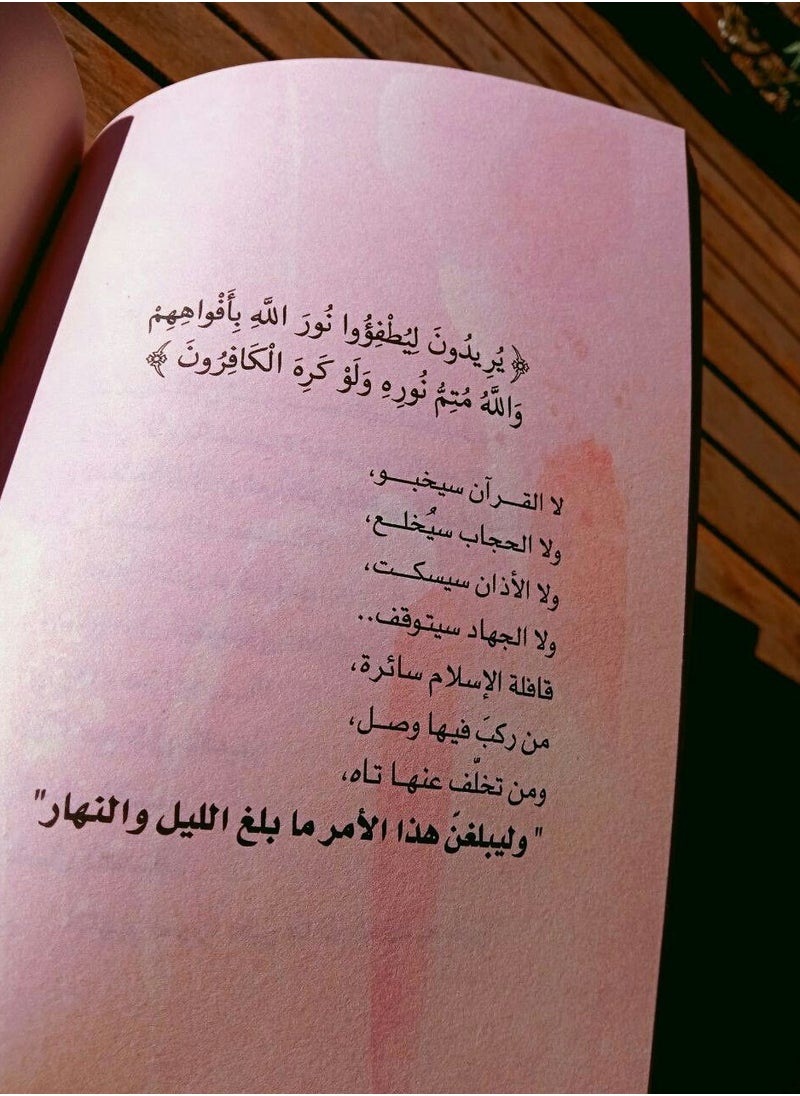 ﴿ يُرِيدُونَ لِيُطْفِؤُوا نُورَ اللَّهِ بِأَفْوَاهِهِمْ
وَاللَّهُ مُتِمُّ نُورِهِ وَلَوْ كَرِهَ الْكَافِرُونَ ﴾
لا القرآن سيخبو،
ولا الحجاب سيُخلع،
ولا الأذان سيسكت،
ولا الجهاد سيتوقف..
قافلة الإسلام سائرة،
من ركبَ فيها وصل،
ومن تخلَّف عنها تاه،
"وليبلغنَّ هذا الأمر ما بلغ الليل والنهار"